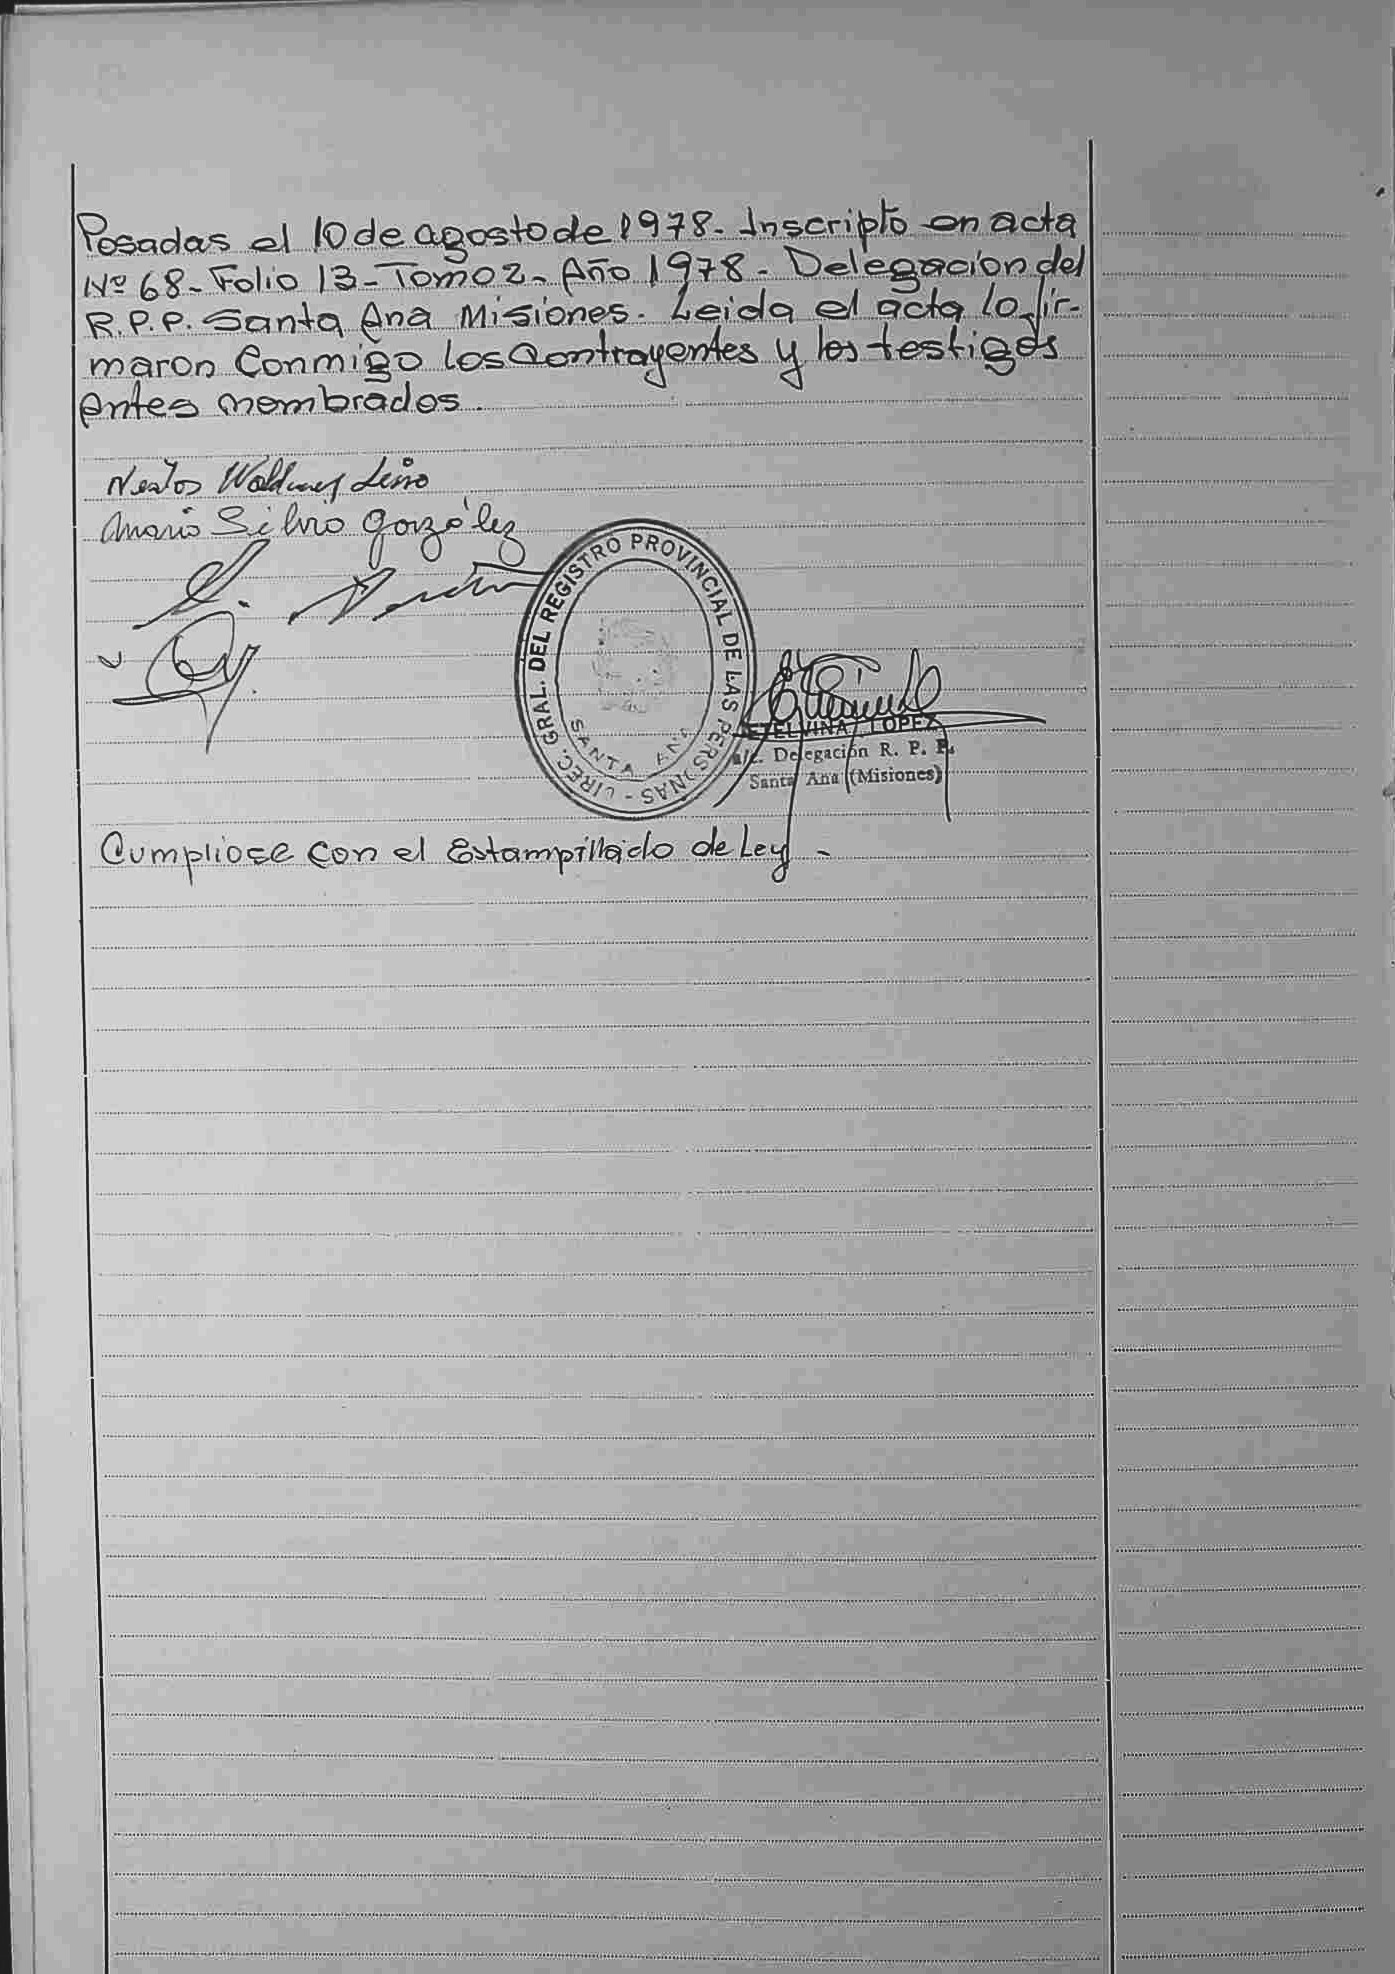 Posadas el 10 de agosto de 1978. Inscripto en acta
Nº 68 - Folio 13 - Tomo 2 - Año 1978 - Delegacion del
R.P.P. Santa Ana Misiones. Leida el acta lo fir-
maron Conmigo los Contrayentes y los testigos
antes nombrados.
Silvio González
DIREC. GRAL. DEL REGISTRO PROVINCIAL DE LAS PERSONAS -
SANTA ANA
ETELVINA LOPEZ
a/c. Delegación R. P. P.
Santa Ana (Misiones)
Cumpliose con el Estampillado de Ley -